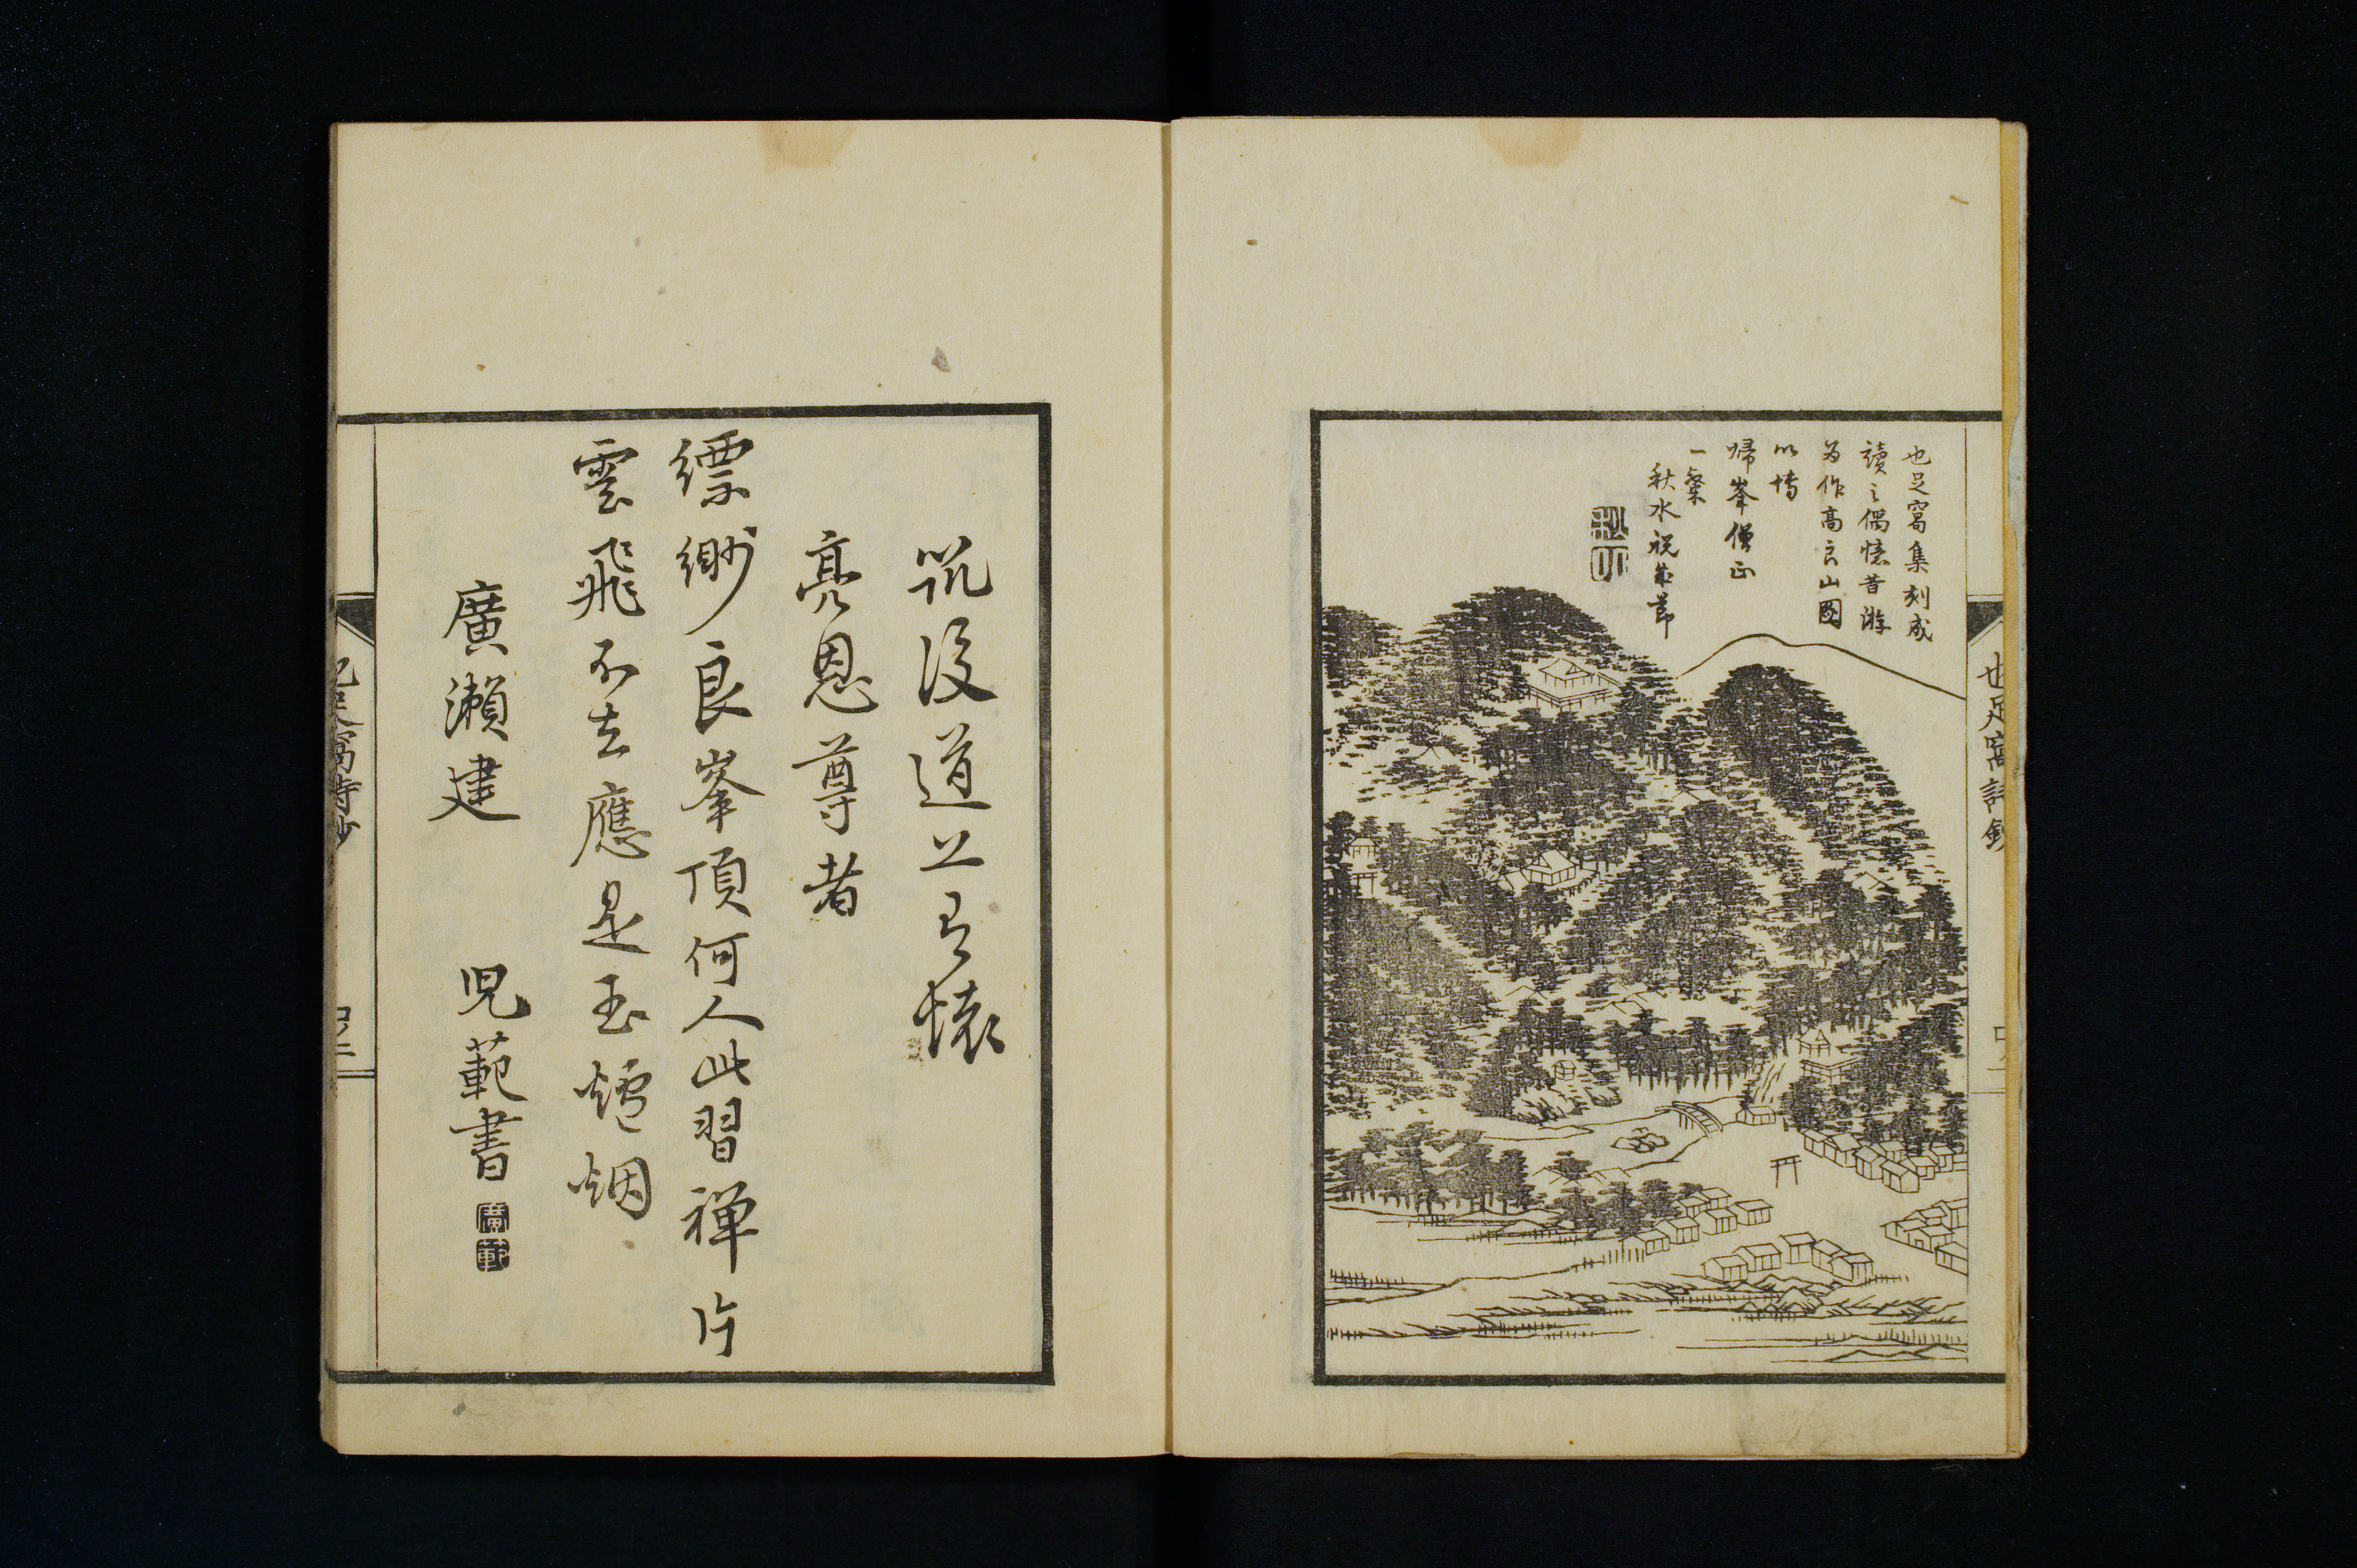 也足窩集刻成
讀之偶憶昔游
為作高良山圖
以博
帰峯僧正
一粲
秋水祝
也足窩詩鈔
筑後道上有懐
亮恩尊者
縹緲良峯頂何人此習禅片
雲飛不去應是玉爐烟
廣瀬建
児範書
廣範